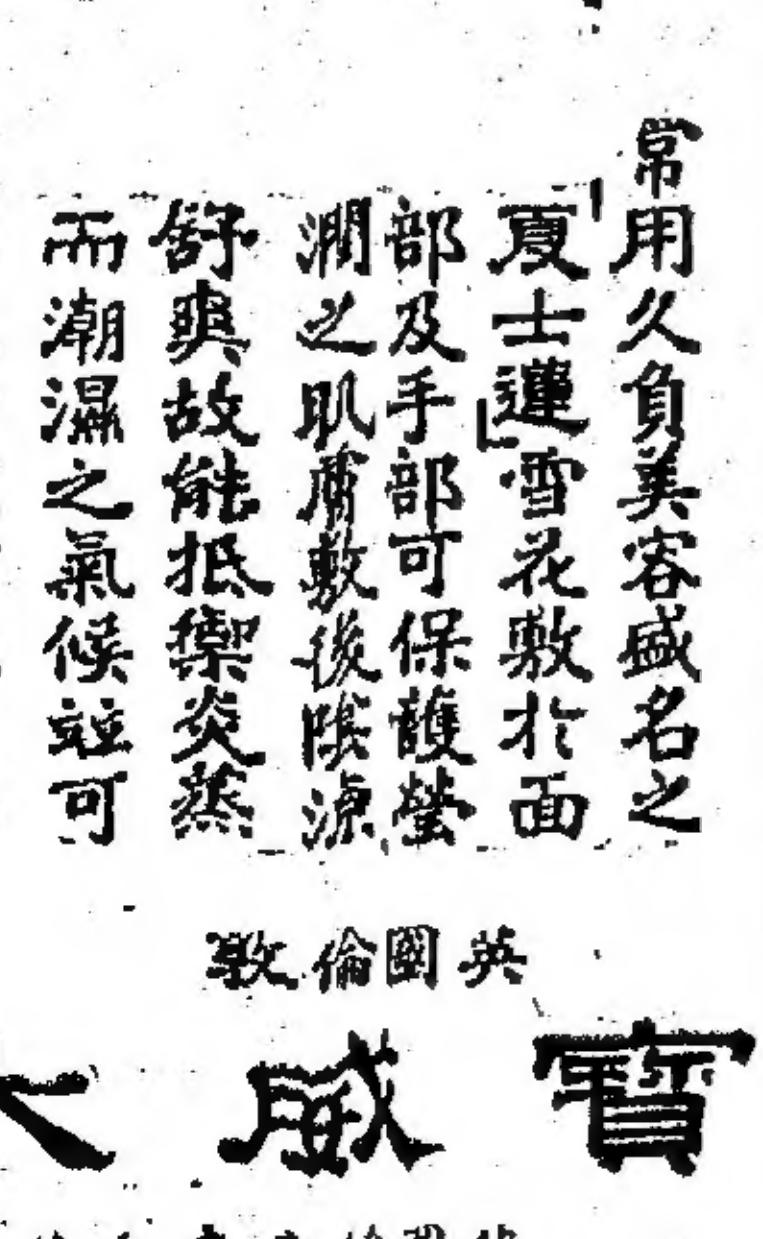 常用久負美容盛名之
「夏士蓮」雪花敷於面
部及手部可保護瑩
潤之肌膚敷後陰涼
舒爽故能抵禦炎蒸
而潮濕之氣候並可
英國倫敦
寶威大